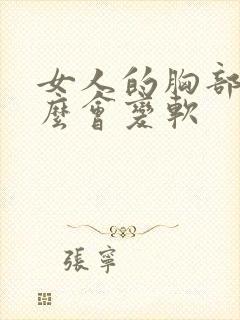 女人的胸部
麼會變軟
張寧